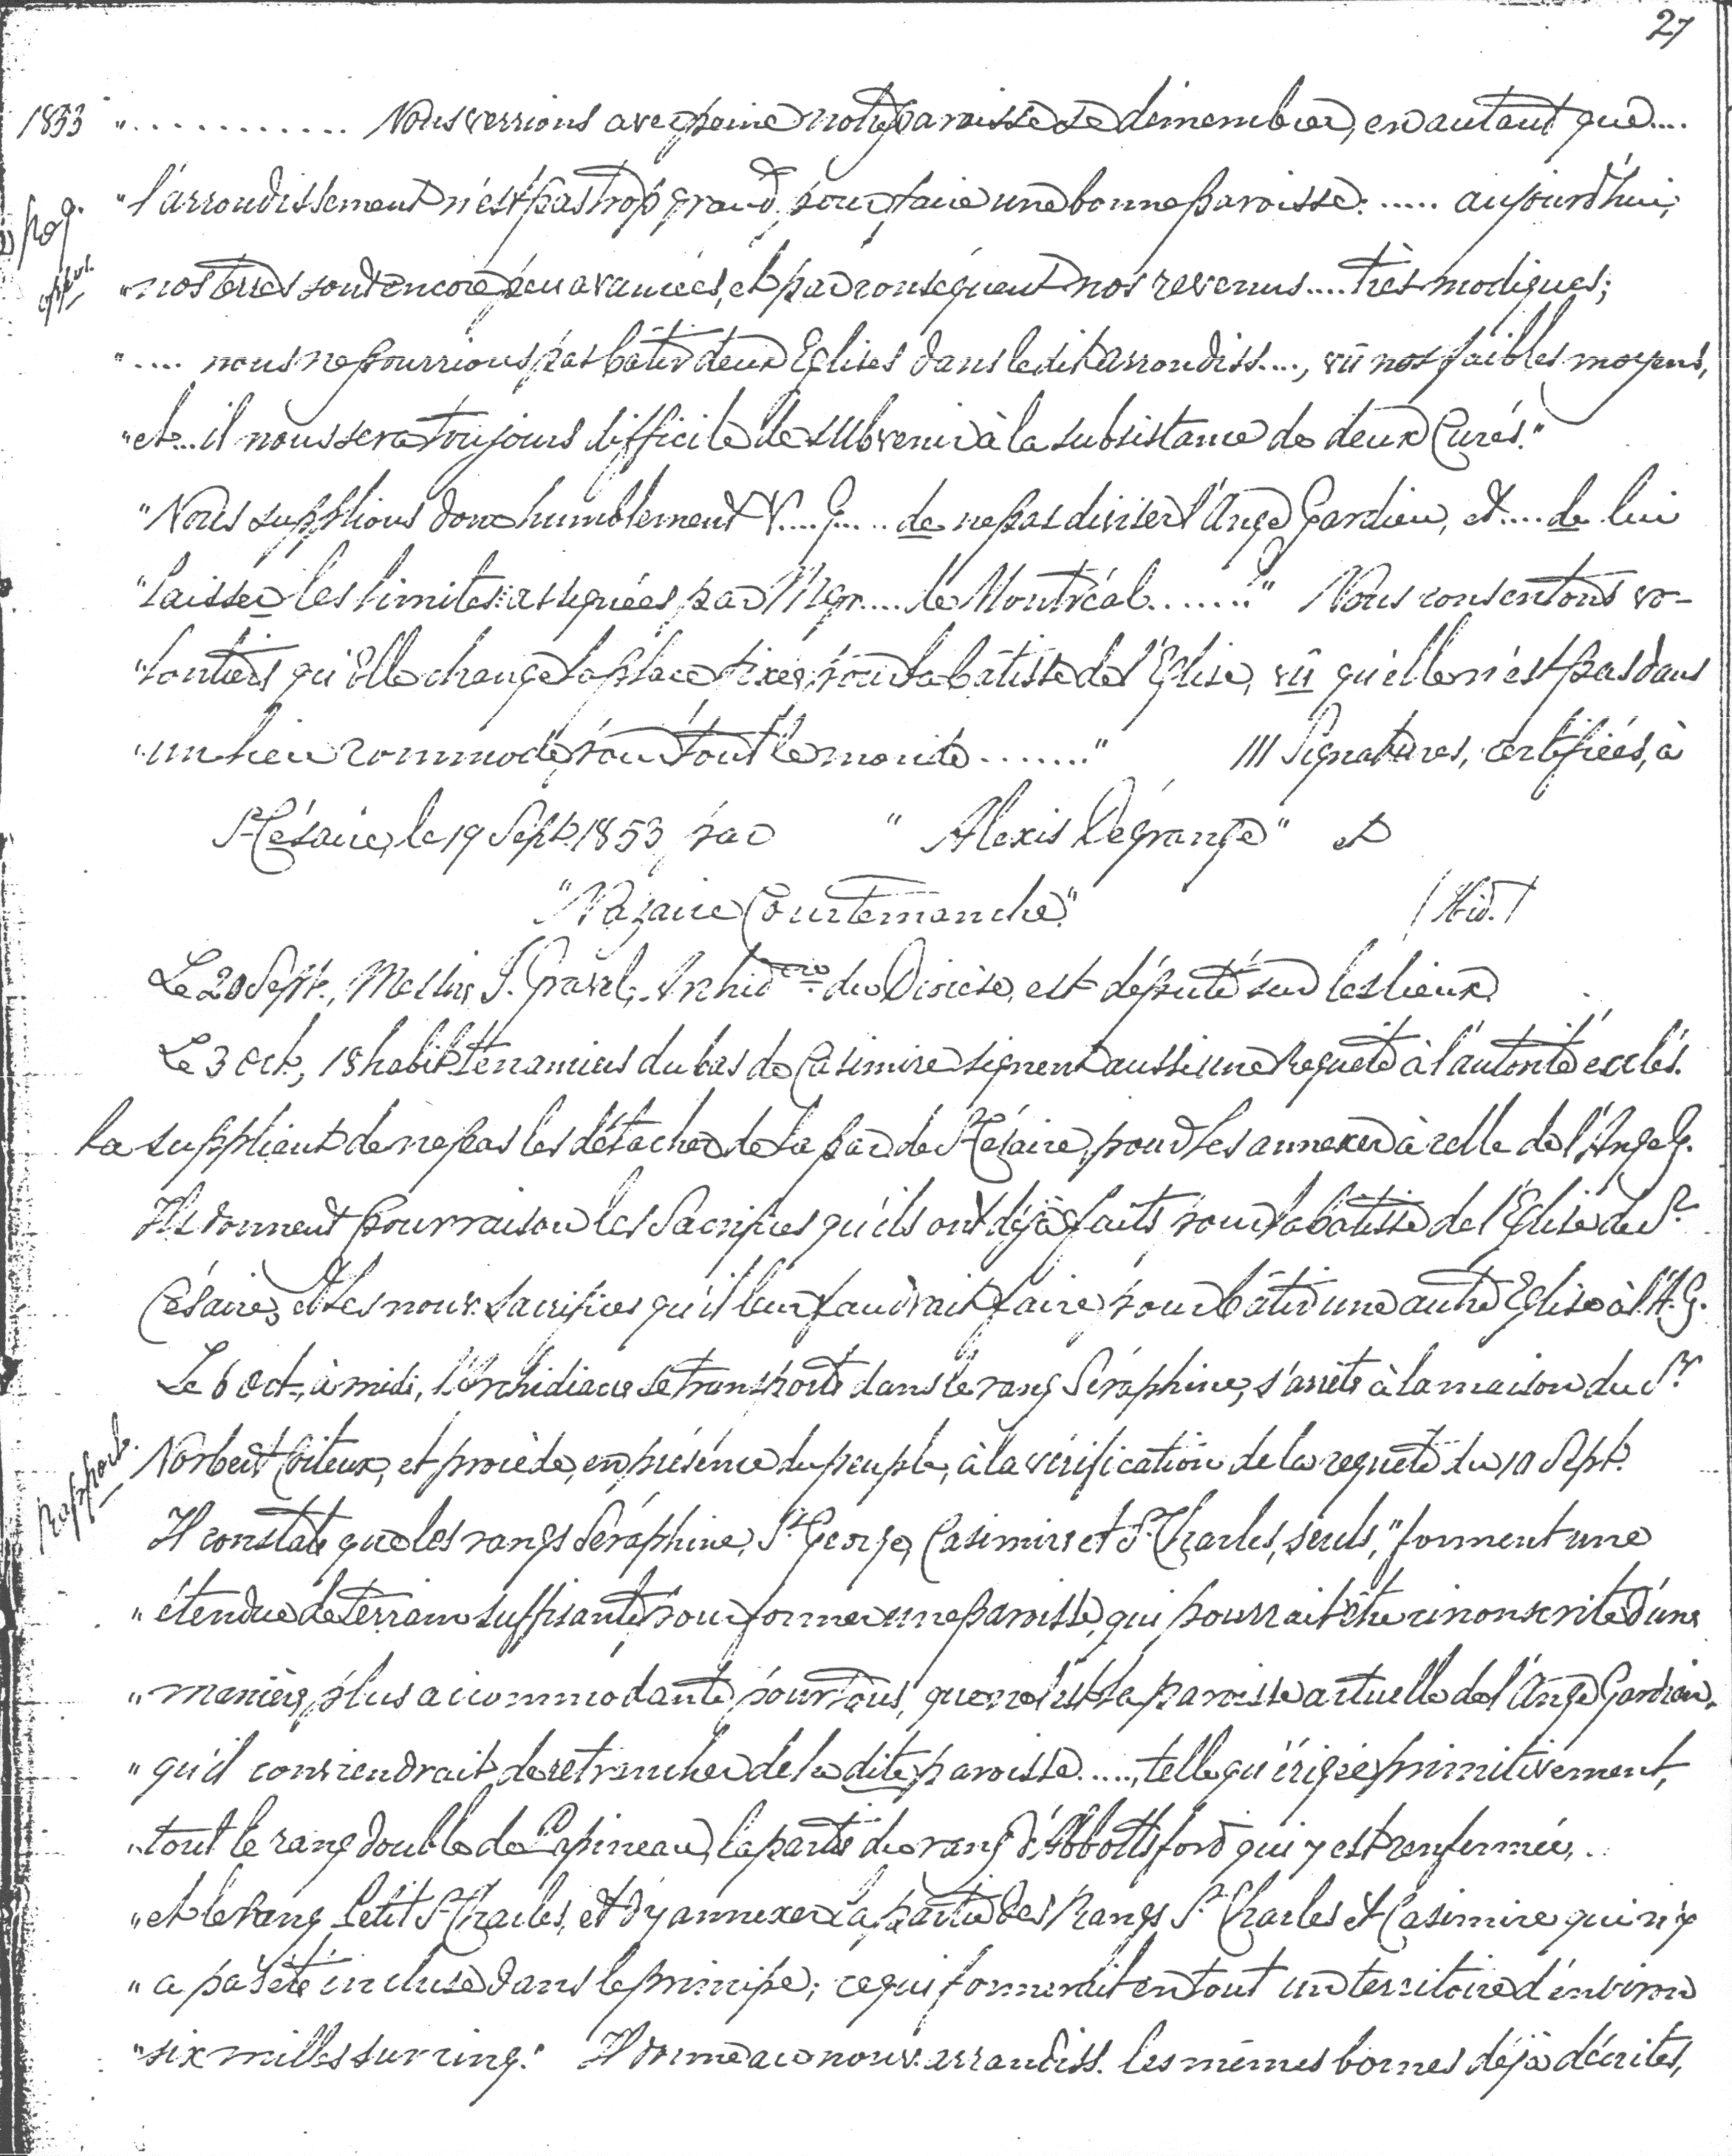 27
1853 " ............ Nous verrions avec peine notre paroisse se démembrer, en autant que....
" l'arrondissement n'est pas trop grand pour faire une bonne paroisse. ..... aujourd'hui,
" nos terres sont encore peu avancées, et par conséquent nos revenus.... très modiques;
" .... nous ne pourrions pas bâtir deux Eglises dans le dit arrondiss...., vû nos faibles moyens,
" et... il nous sera toujours difficile de subvenir à la subsistance de deux Curés."
" Nous supplions donc humblement V.... G..... de ne pas diviser l'Ange Gardien, et.... de lui
" laisser les limites assignées par Mgr.... de Montréal......." Nous consentons vo-
" lontiers qu'Elle change la place fixée pour la bâtisse de l'Eglise, vû qu'elle n'est pas dans
" un lieu commode pour tout le monde ......." 111 Signatures, certifiées, à
St Césaire, le 19 Sept. 1853 par " Alexis Dégrange" et
" Nazaire Courtemanche" / Ibid. /
Le 20 Sept., Messire J. Gravel, Archid.cre du Diocèse, est député sur les lieux.
Le 3 Oct., 18 habit. tenanciers du bas de Casimire signent aussi une requête à l'autorité ecclés.
la suppliant de ne pas les détacher de la par. de St Césaire, pour les annexer à celle de l'Ange G.
Ils donnent pour raison les Sacrifices qu'ils ont déjà faits pour la bâtisse de l'Eglise de St
Césaire, et les nouv. sacrifices qu'il leur faudrait faire pour bâtir une autre Eglise à l'A. G.
Le 6 Oct., à midi, l'Archidiacre se transporte dans le rang Séraphine, s'arrête à la maison du Sr
Rapport. Norbert Coiteux, et procède, en présence du peuple, à la vérification de la requête du 10 Sept.
Il constate que les rangs Séraphine, St George, Casimire et St Charles, seuls, "forment une
" étendue de terrain suffisante pour former une paroisse, qui pourrait être circonscrite d'une
" manière plus accommodante pour tous, que ne l'est la paroisse actuelle de l'Ange Gardien,
" qu'il conviendrait de retrancher de la dite paroisse....., telle qu'érigée primitivement,
" tout le rang double de Papineau, la partie du rang d'Abbottsford qui y est renfermée,
" et le rang Petit St Charles, et d'y annexer la partie des Rangs St Charles et Casimire qui n'y
" a pas été incluse dans le principe; ce qui formerait en tout un territoire d'environ
" six milles sur cinq." Il donne à ce nouv. arrondiss. les mêmes bornes déjà décrites,